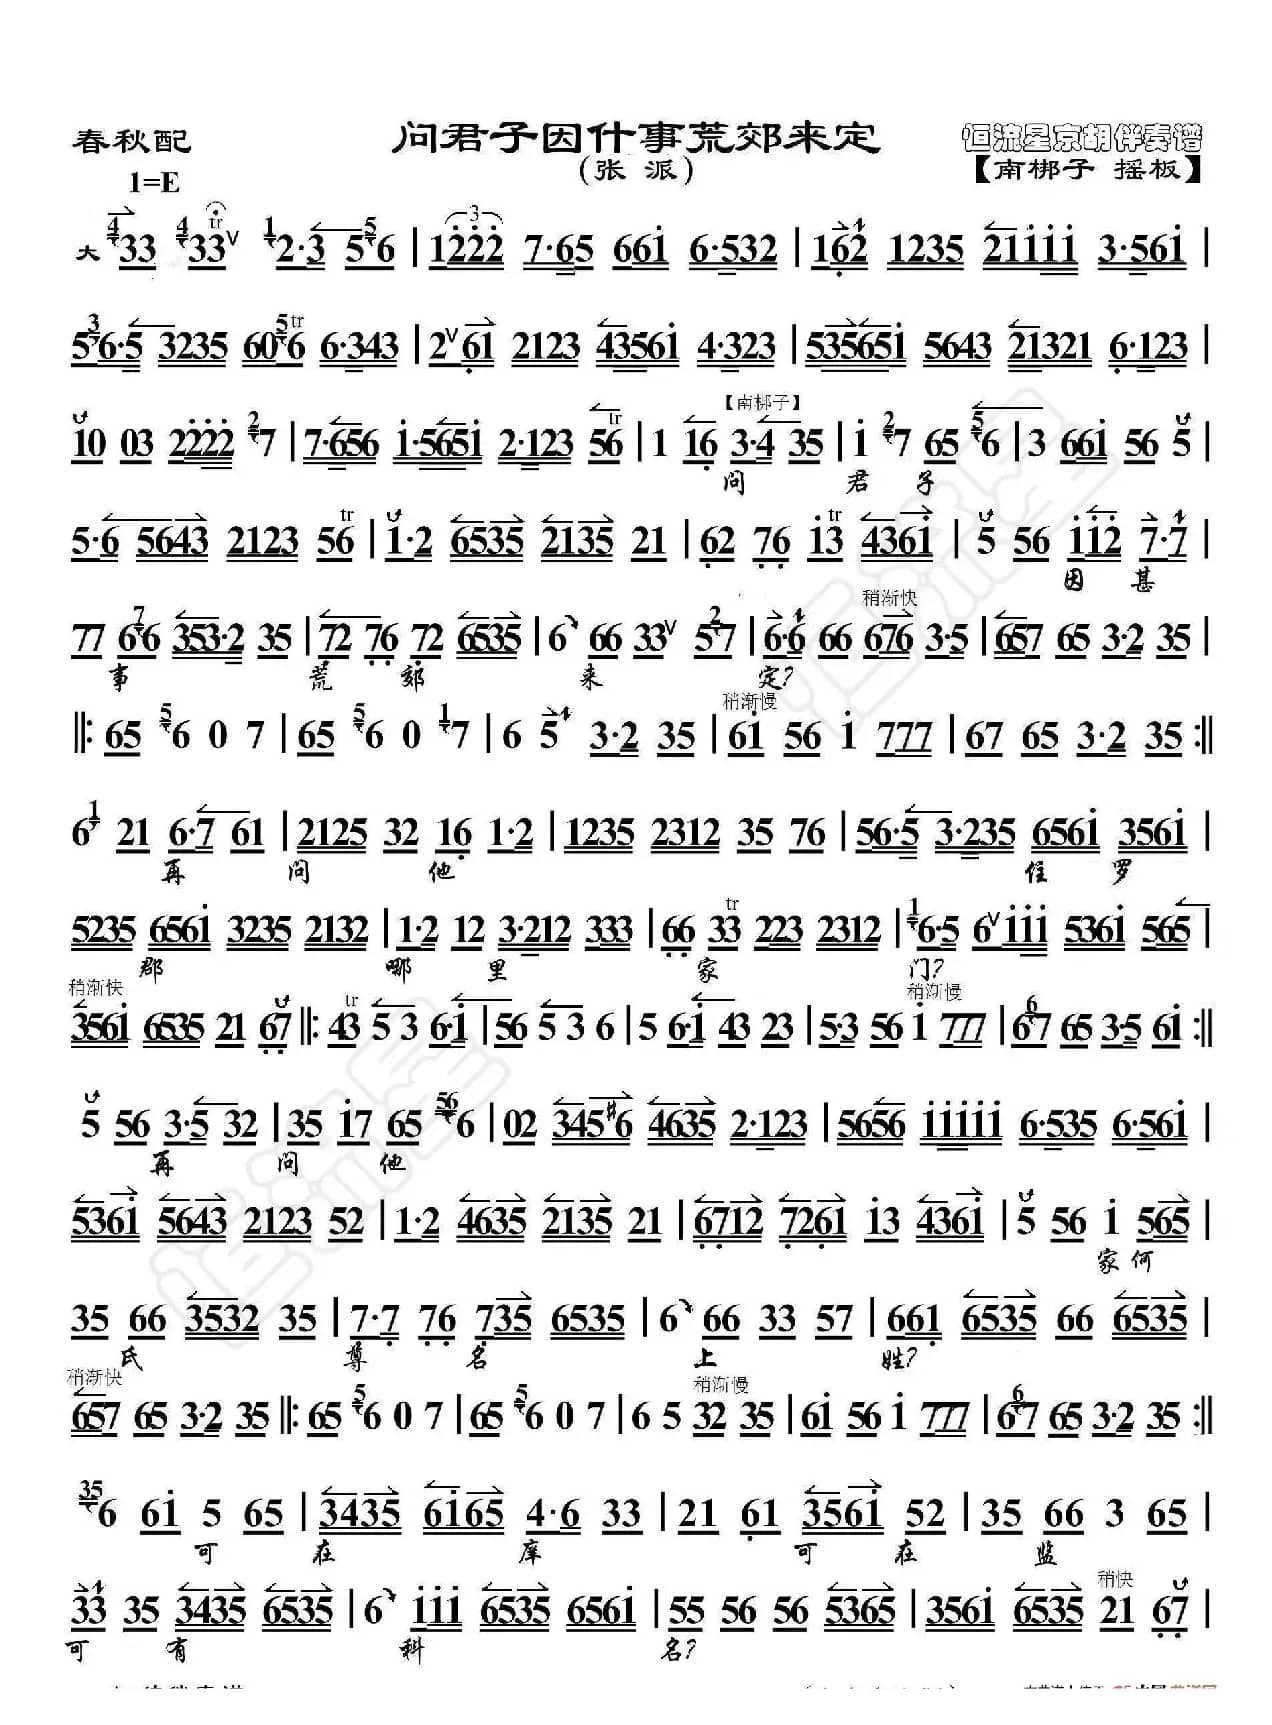 春秋配 问君子因什事荒郊来定 恒流星京胡伴奏谱
（张派） 【南梆子 摇板】
1=E
大 33 33 2·3 5 6 | 1222 7·65 661 6·532 | 162 1235 21111 3·561 |
56·5 3235 60 6 6·343 | 2 61 2123 43561 4·323 | 535651 5643 21321 6·123 |
【南梆子】
10 03 2222 7 | 7·656 1·5651 2·123 56 | 1 16 3·4 35 | 1 7 65 6 | 3 661 56 5 |
问 君 子
5·6 5643 2123 56 | 1·2 6535 2135 21 | 62 76 13 4361 | 5 56 112 7·7 |
因 甚
稍渐快
77 66 353·2 35 | 72 76 72 6535 | 6 66 33 57 | 6·6 66 676 3·5 | 657 65 3·2 35 |
事 荒 郊 来 定?
稍渐慢
‖: 65 6 0 7 | 65 6 0 7 | 6 5 3·2 35 | 61 56 1 777 | 67 65 3·2 35 :‖
6 21 6·7 61 | 2125 32 16 1·2 | 1235 2312 35 76 | 56·5 3·235 6561 3561 |
再 问 他 住 罗
5235 6561 3235 2132 | 1·2 12 3·212 333 | 66 33 223 2312 | 6·5 6 111 5361 565 |
郡 哪 里 家 门?
稍渐快 稍渐慢
3561 6535 21 67 ‖: 43 5 3 6·1 | 56 5 3 6 | 5 6·1 43 23 | 5·3 56 1 777 | 67 65 3·5 61 :‖
5 56 3·5 32 | 35 17 65 6 | 02 345#6 4635 2·123 | 5656 11111 6·535 6·561 |
再 问 他
5361 5643 2123 52 | 1·2 4635 2135 21 | 6712 7261 13 4361 | 5 56 1 565 |
家 何
35 66 3532 35 | 7·7 76 735 6535 | 6 66 33 57 | 661 6535 66 6535 |
氏 尊 名 上 姓?
稍渐快 稍渐慢
657 65 3·2 35 ‖: 65 6 0 7 | 65 6 0 7 | 6 5 32 35 | 61 56 1 777 | 67 65 3·2 35 :‖
6 61 5 65 | 3435 6165 4·6 33 | 21 61 3561 52 | 35 66 3 65 |
可 在 庠 可 在 监
稍快
33 35 3435 6535 | 6 111 6535 6561 | 55 56 56 5365 | 3561 6535 21 67 |
可 有 科 名?